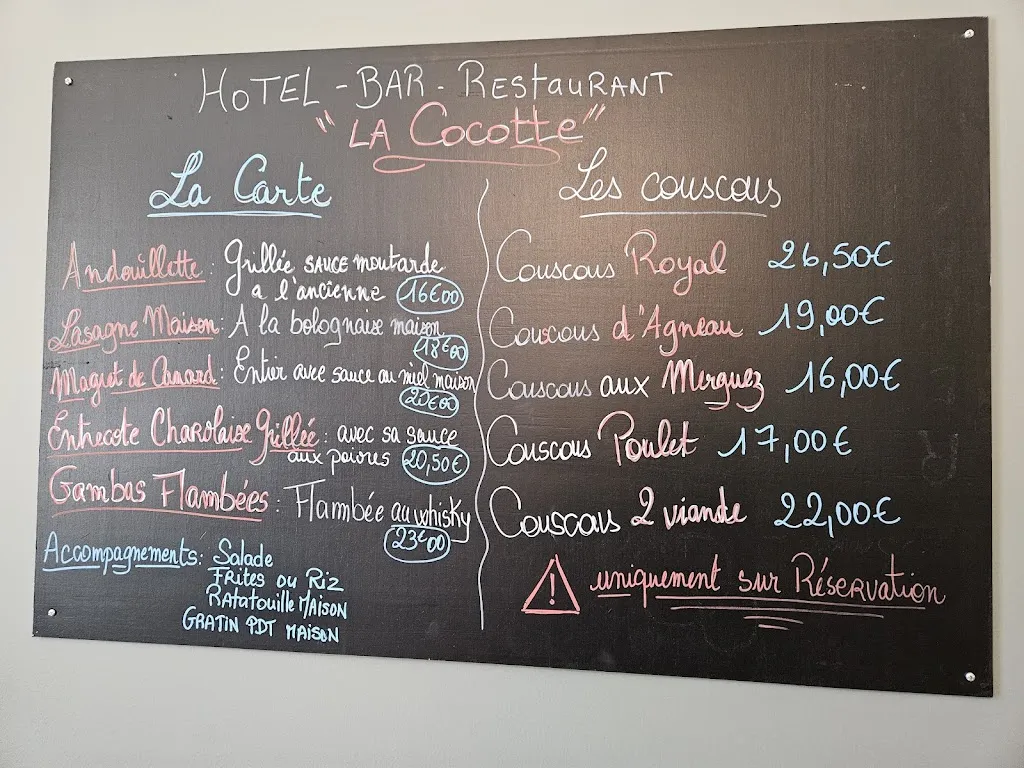 HOTEL - BAR - RESTAURANT
"LA Cocotte"
La Carte
Andouillette : Grillée SAUCE moutarde
a l'ancienne 16€00
Lasagne Maison : A la bolognaise maison
18€00
Magret de Canard : Entier avec sauce au miel maison
20€00
Entrecote Charolaise Grillée : avec sa sauce
aux poivres 20,50€
Gambas Flambées : Flambée au whisky
23€00
Accompagnements : Salade
Frites ou Riz
Ratatouille Maison
GRATIN PDT MAISON
Les couscous
Couscous Royal 26,50€
Couscous d'Agneau 19,00€
Couscous aux Merguez 16,00€
Couscous Poulet 17,00€
Couscous 2 viande 22,00€
! uniquement sur Réservation